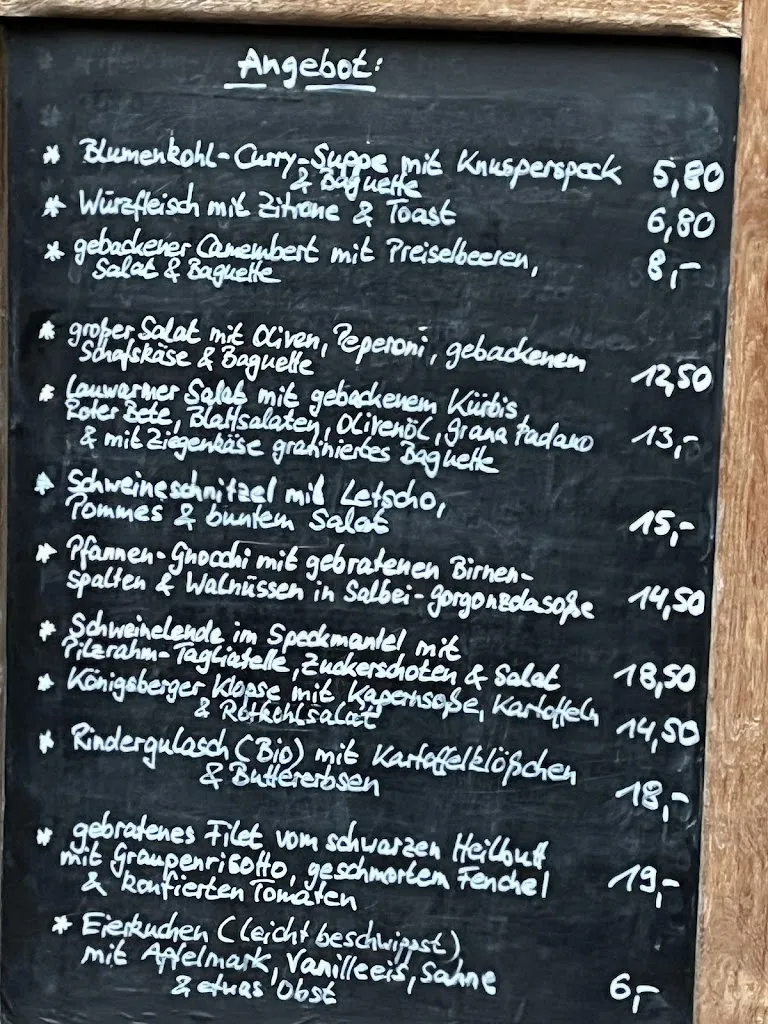 Angebot:
* Blumenkohl-Curry-Suppe mit Knusperspeck 5,80
& Baguette
* Würzfleisch mit Zitrone & Toast 6,80
* gebackener Camembert mit Preiselbeeren, 8,-
Salat & Baguette
* großer Salat mit Oliven, Peperoni, gebackenem
Schafskäse & Baguette 12,50
* Lauwarmer Salat mit gebackenem Kürbis,
Roter Bete, Blattsalaten, Olivenöl, Grana Padano 13,-
& mit Ziegenkäse gratiniertes Baguette
* Schweineschnitzel mit Letscho,
Pommes & buntem Salat 15,-
* Pfannen-Gnocchi mit gebratenen Birnen-
spalten & Walnüssen in Salbei-Gorgonzolasoße 14,50
* Schweinelende im Speckmantel mit
Pilzrahm-Tagliatelle, Zuckerschoten & Salat 18,50
* Königsberger Klopse mit Kapernsoße, Kartoffeln
& Rotkohlsalat 14,50
* Rindergulasch (Bio) mit Kartoffelklößchen
& Buttererbsen 18,-
* gebratenes Filet vom schwarzen Heilbutt
mit Graupenrisotto, geschmortem Fenchel 19,-
& konfierten Tomaten
* Eierkuchen (leicht beschwippst)
mit Apfelmark, Vanilleeis, Sahne
& etwas Obst 6,-